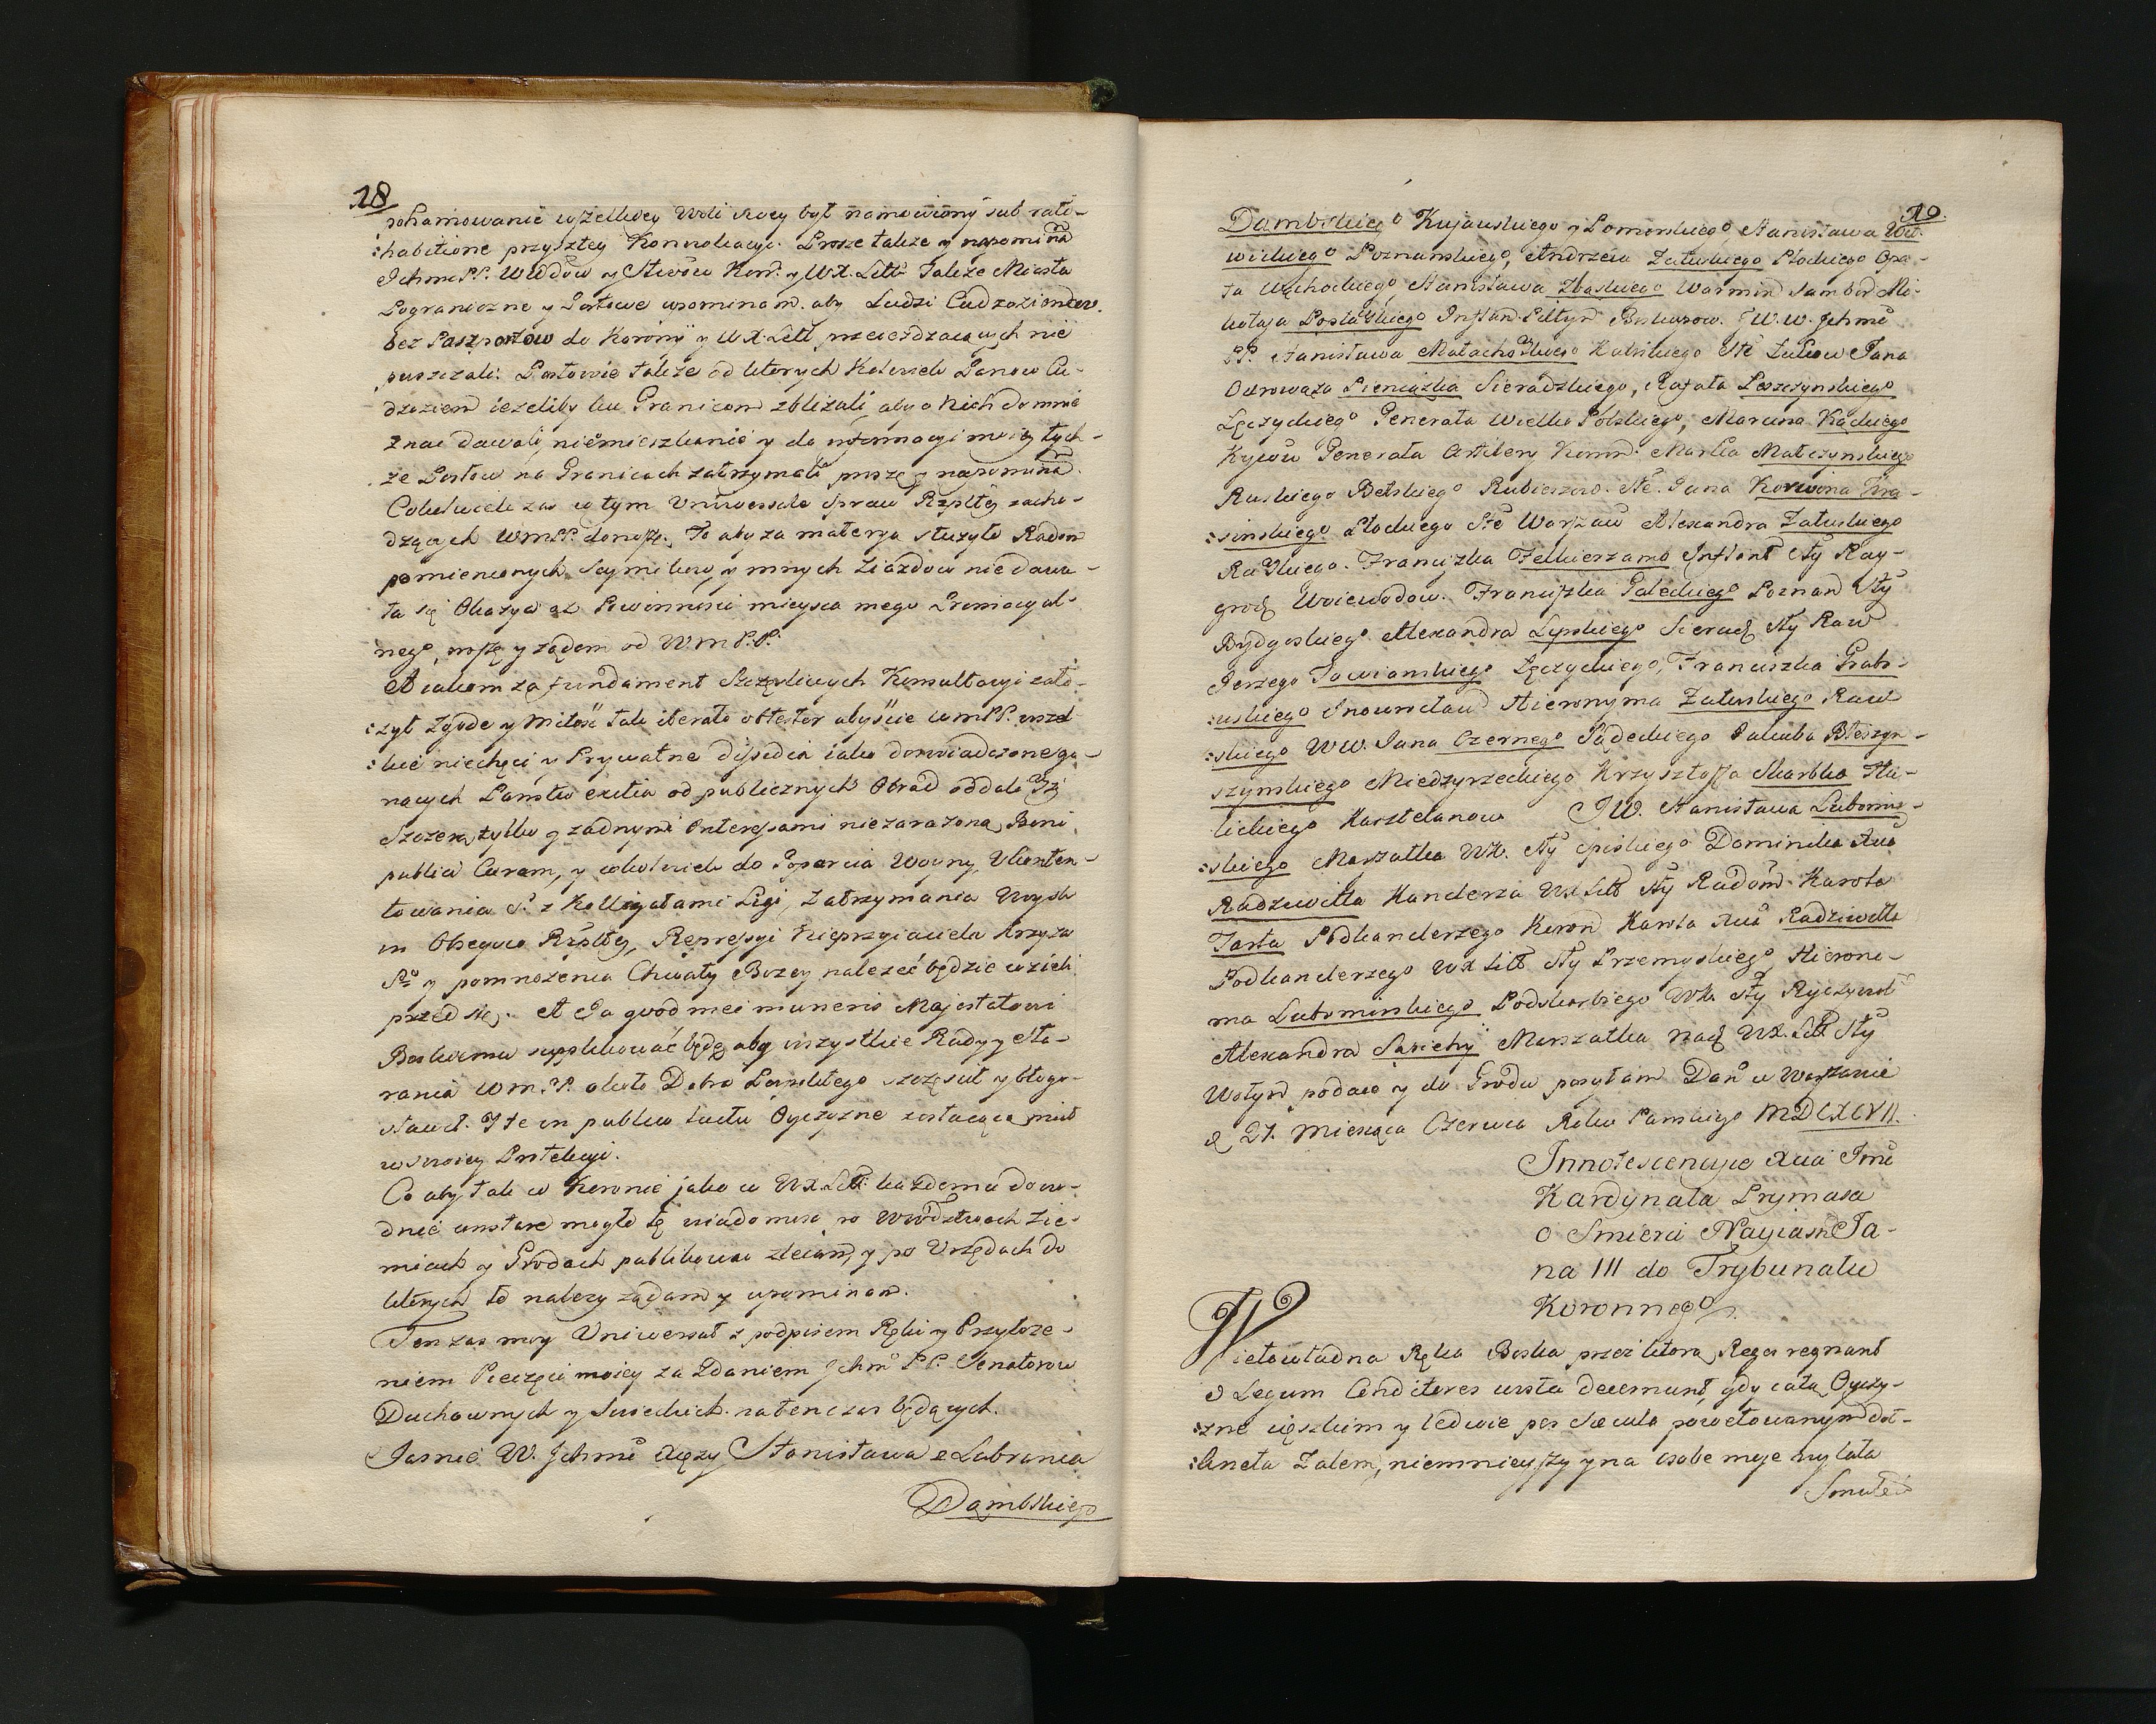 18
pohamowanie wszelkiey Woli swey był namowiony sub rati-
:habitione przyszłey Konwokacyi. Prosze takze y napomina͠
Ichmć PP. Wwdow y Stwow Kor. y W.X. Litt. Takze Miasta
Pograniczne y Portowe upominam. aby Ludzi Cudzoziemcow.
bez Paszportow do Korony y W.X. Litt. przeiezdzaiących nie
puszczali: Posłowie takze od ktorych kolwiek Panow Cu-
dzoziem iezeliby ku Granicom zblizali, aby o Nich do mnie
znac dawali, niemieszkanie y do informacyi moiey tych-
ze Posłow na Granicach zatrzymali proszę y napomina͠.
Cokolwiek zas w tym Uniwersale spraw Rzpltey zacho-
dzących WmPP. donoszę, To aby za materyą służyło Radom
pomienionych Seymikow, y innych Ziazdow nie dawa-
ła się Okazya ex Powinnosci mieysca mego Prymacyal-
nego, proszę y ządam od WmP.P.
A iakom za fundament Szczęsliwych Konsultacyi zało-
:żył Zgodę y Miłość tak iterato obtestor abyscie WmPP. wszel-
:kie niechęci y Prywatne dissidia iako doswiadczone gi-
nących Państw exitia od publicznych Obrad oddaliwszy
Szczerą tylko y zadnymi Interessami niezarazoną Boni
publici Curam, y cokolwiek do Poparcia Woyny, Ukonten-
towania S. z Kolligatami Ligi, Zatrzymania Woysk
in Obsequio Rzpltey, Repressyi Nieprzyiaciela Krzyza
So y pomnozenia Chwały Bozey nalezeć będzie wzieli
przed się. A Ja quod mei muneris Majestatowi
Boskiemu supplikować będę aby wszystkie Rady y Sta-
rania WmP.P. około Dobra Pospolitego szczęscił y błogo-
sławił. Y tę in publico luctu Oyczyznę zostaiącą miał
w swoiey Protekcyi.
Co aby tak w Koronie jako w W.X. Litt. kazdemu dowo-
dnie constare mogło tę wiadomość po Wwodztwach Zie-
miach y Grodach publikować zlecam, y po Urzędach do
ktorych to nalezy ządam y upominam.
Ten zas moy Uniwersał z podpisem Ręki y Przyłoze-
niem Pieczęci moiey za Zdaniem Ichmć PP. Senatorow
Duchownych y Swieckich natenczas będących.
Jasnie W. Ichmć Xięzy Stanisława z Lubrańca
Dąmbskiego
19.
Dąmbskiego Kujawskiego y Pomorskiego, Stanisława Wit-
wickiego Poznańskiego, Andrzeia Załuskiego Płockiego Opa-
ta Wąchockiego, Stanisława Zbąskiego Warmiń Sambor Mi-
kołaja Popławskiego Inflan. Piltyń Biskupow. J W. W. Jchmć
PP. Stanisława Małachowskiego Kaliskiego Stę Zukow Jana
Odrowąza Pieniązka Sieradzkiego, Rafała Leszczynskiego
Łęczyckiego Generała Wielko Polskiego, Marcina Kąckiego
Kyiow Generała Artilery Koron. Marka Matczynskiego
Ruskiego Bełskiego Rubieszow. Ste. Jana Korwina Kra-
:sinskiego Płockiego Stę Warszaw Alexandra Załuskiego
Rawskiego. Franciszka Felkierzamb Inflant Sty Ray-
grod Woiewodow. Franciszka Gałeckiego Poznan Sty
Bydgoskiego Alexandra Lipskiego Sieradz Sty Raw
Jerzego Towianskiego Łęczyckiego, Franciszka Grabs-
:wskiego Inowrocław Hieronyma Załuskiego Raw
:skiego Ww. Jana Czernego Sądeckiego Jakuba Błeszyn-
szynskiego Międzyrzeckiego Krzysztofa Skarbka Ha-
lickiego Kasztelanow JW. Stanisława Lubomir-
:skiego Marszałka Wk. Sty Spiskiego Dominika Xcia
Radziwiłła Kanclerza W.X Litt Sty Radom Karola
Tarła Podkanclerzego Koron Karola Xcia Radziwiłła
Podkanclerzego W.X Litt Sty Przemyskiego, Hieroni-
ma Lubomirskiego Podskarbiego Wk. Sty Ryczywol
Alexandra Sapiehy Marszałka Nad W.X. Litt Sty
Wołyn podaię y do Grodu posyłam Dan w Warszawie
d 21. Miesiąca Czerwca Roku Panskiego MDCXCVII.
Innotescencya Xcia Jmć
Kardynała Prymasa
o Smierci Nayiasn Ja-
na III do Trybunału
Koronnego.
Wielowładna Ręka Boska przez ktorą Reges regnant
& Legum Conditores iusta decernunt, gdy całą Oyczy-
:znę cięszkim y ledwie per Sæcula powetowanym dot-
:knęła Zalem, niemnieyszy y na osobę moję wylała
Smutek